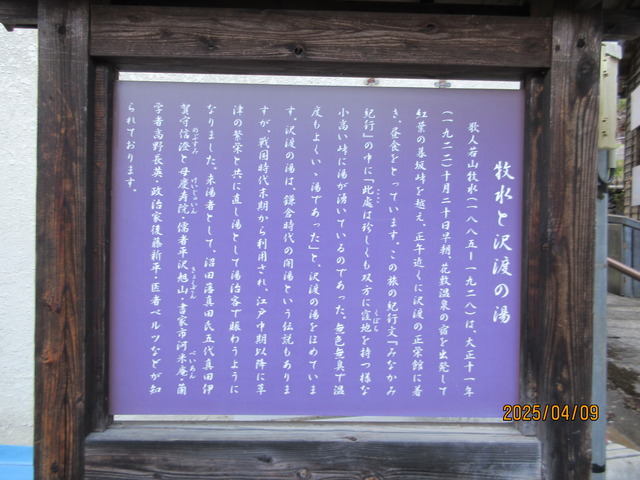 牧水と沢渡の湯
歌人若山牧水(一八八五ー一九二八)は、大正十一年
(一九二二)十月二十日早朝、花敷温泉の宿を出発して
紅葉の暮坂峠を越え、正午近くに沢渡の正栄館に着
き、昼食をとっています。この旅の紀行文『みなかみ
紀行』の中に「此処は珍しくも双方に窪地を持つ様な
小高い峠に湯が湧いているのであった。無色無臭で温
度もよくいゝ湯であった」と、沢渡の湯をほめていま
す。沢渡の湯は、鎌倉時代の開湯という伝説もありま
すが、戦国時代末期から利用され、江戸中期以降に草
津の繁栄と共に直し湯として湯治客で賑わうように
なりました。来湯者として、沼田藩真田氏五代真田伊
賀守信澄と母慶寿院・儒者平沢旭山・書家市河米庵・蘭
学者高野長英・政治家後藤新平・医者ベルツなどが知
られております。
2025/04/09